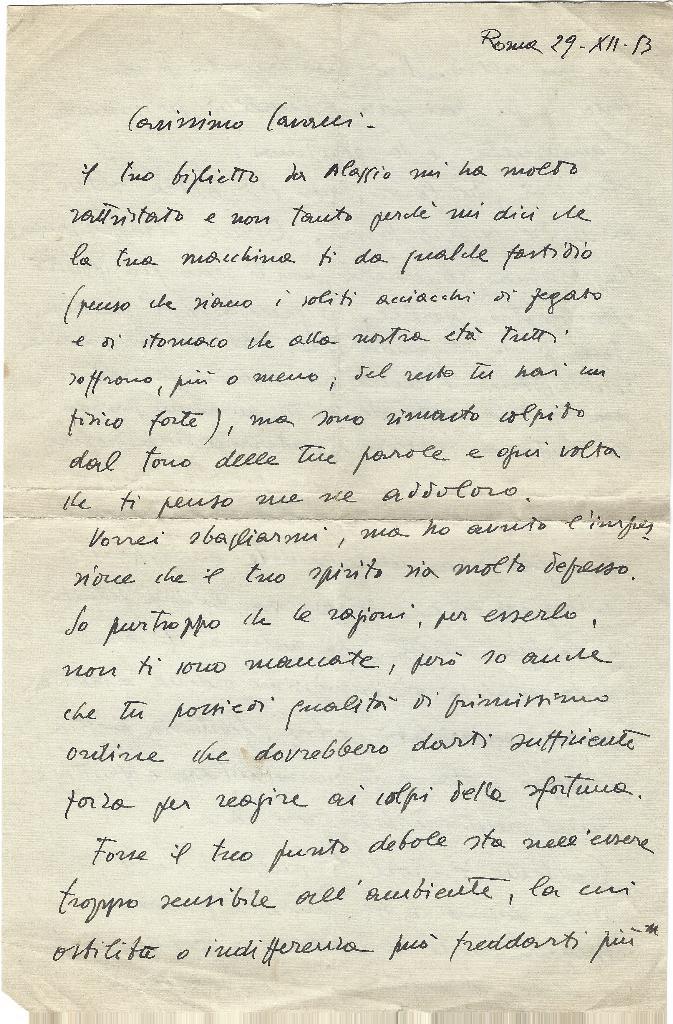 Roma 29-XII-53
Carissimo Cavacci -
il tuo biglietto da Alassio mi ha molto
rattristato e non tanto perché mi dici che
la tua macchina ti da qualche fastidio
(penso che siano i soliti acciacchi di fegato
e di stomaco che alla nostra età tutti
soffrono, più o meno; del resto tu hai un
fisico forte), ma sono rimasto colpito
dal tono delle tue parole e ogni volta
che ti penso me ne addoloro.
Vorrei sbagliarmi, ma ho avuto l'impres
sione che il tuo spirito sia molto depresso.
So purtroppo che le ragioni, per esserlo,
non ti sono mancate, però so anche
che tu possiedi qualità di primissimo
ordine che dovrebbero darti sufficiente
forza per reagire ai colpi della sfortuna.
Forse il tuo punto debole sta nell'essere
troppo sensibile all'ambiente, la cui
ostilità o indifferenza può freddarti più